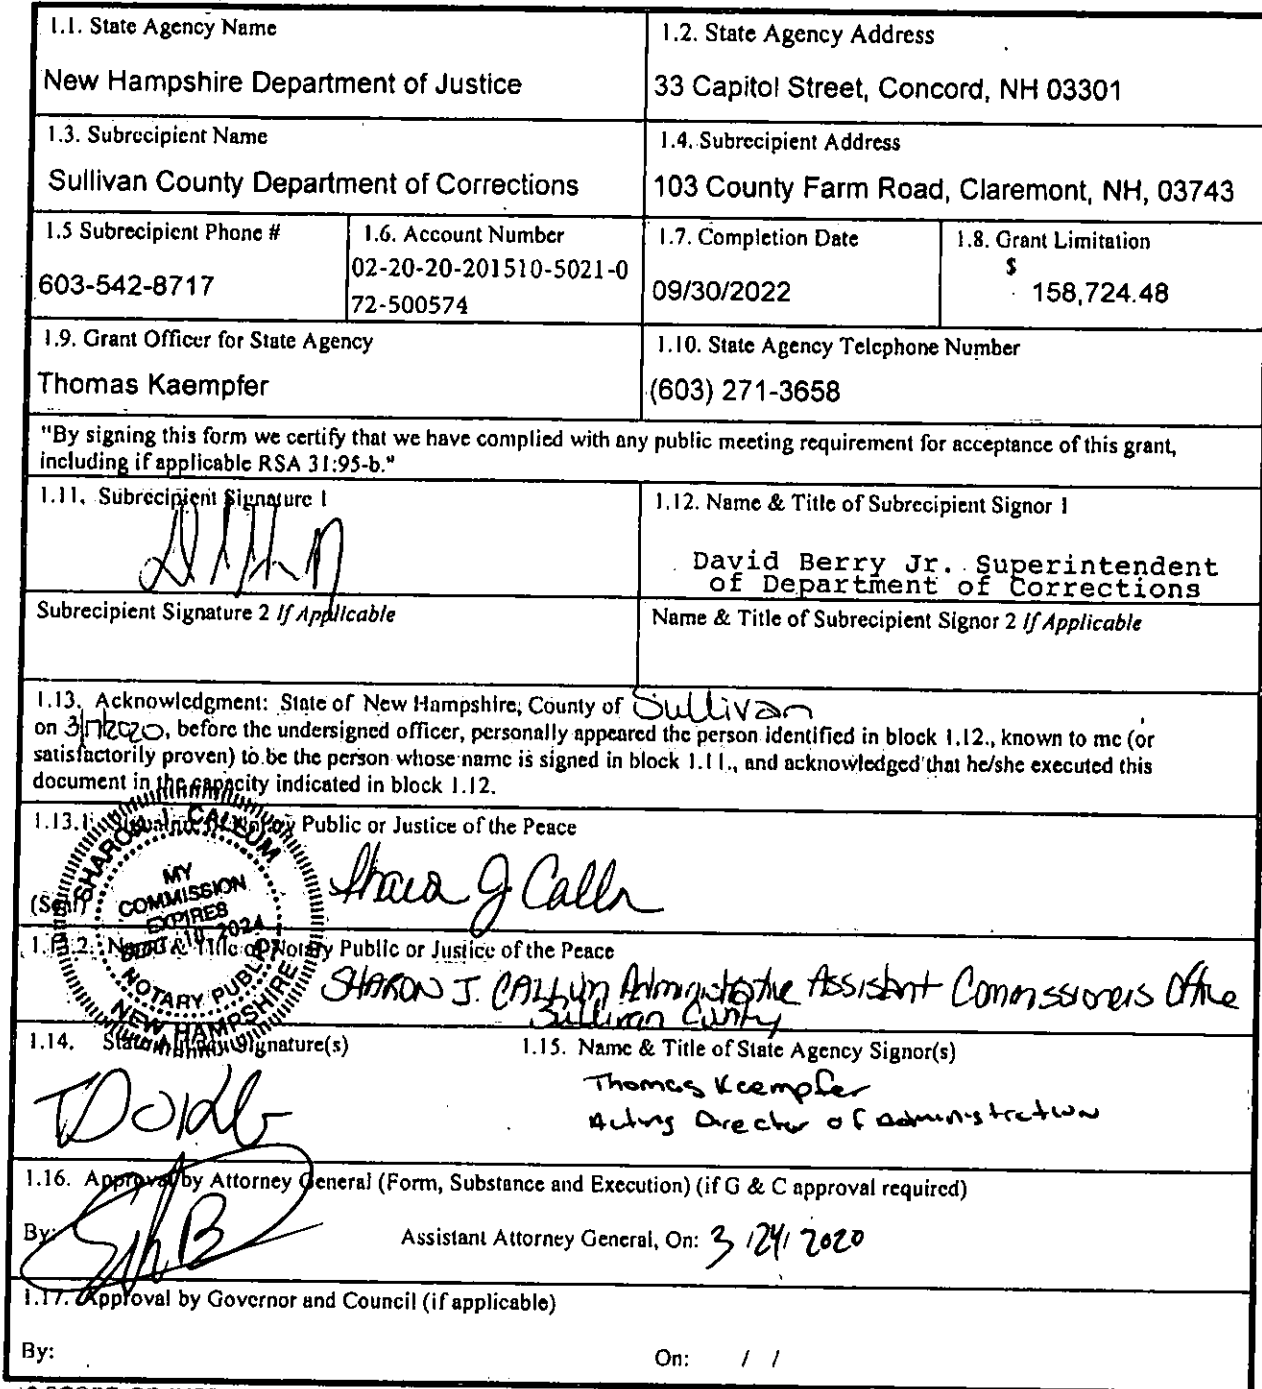 1.1. State Agency Name
New Hampshire Department of Justice
1.2. State Agency Address
33 Capitol Street, Concord, NH 03301
1.3. Subrecipient Name
Sullivan County Department of Corrections
1.4. Subrecipient Address
103 County Farm Road, Claremont, NH, 03743
1.5 Subrecipient Phone #
603-542-8717
1.6. Account Number
02-20-20-201510-5021-0
72-500574
1.7. Completion Date
09/30/2022
1.8. Grant Limitation
$
158,724.48
1.9. Grant Officer for State Agency
Thomas Kaempfer
1.10. State Agency Telephone Number
(603) 271-3658
"By signing this form we certify that we have complied with any public meeting requirement for acceptance of this grant,
including if applicable RSA 31:95-b."
1.11. Subrecipient Signature 1
1.12. Name & Title of Subrecipient Signor 1
David Berry Jr. Superintendent
of Department of Corrections
Subrecipient Signature 2 If Applicable
Name & Title of Subrecipient Signor 2 If Applicable
1.13. Acknowledgment: State of New Hampshire, County of Sullivan
on 3/17/2020, before the undersigned officer, personally appeared the person identified in block 1.12., known to me (or
satisfactorily proven) to be the person whose name is signed in block 1.11., and acknowledged that he/she executed this
document in the capacity indicated in block 1.12.
1.13.1 Public or Justice of the Peace
(Seal)
SHARON J. CALLUM
MY
COMMISSION
EXPIRES
10, 2024
NOTARY PUBLIC
NEW HAMPSHIRE
1.13.2. Name & Title of Notary Public or Justice of the Peace
SHARON J. CALLUM Administrative Assistant Commissioners Office
Sullivan County
1.14. State Agency Signature(s)
1.15. Name & Title of State Agency Signor(s)
Thomas Kaempfer
Acting Director of Administration
1.16. Approval by Attorney General (Form, Substance and Execution) (if G & C approval required)
By:
Assistant Attorney General, On: 3 /24/ 2020
1.17. Approval by Governor and Council (if applicable)
By:
On: / /